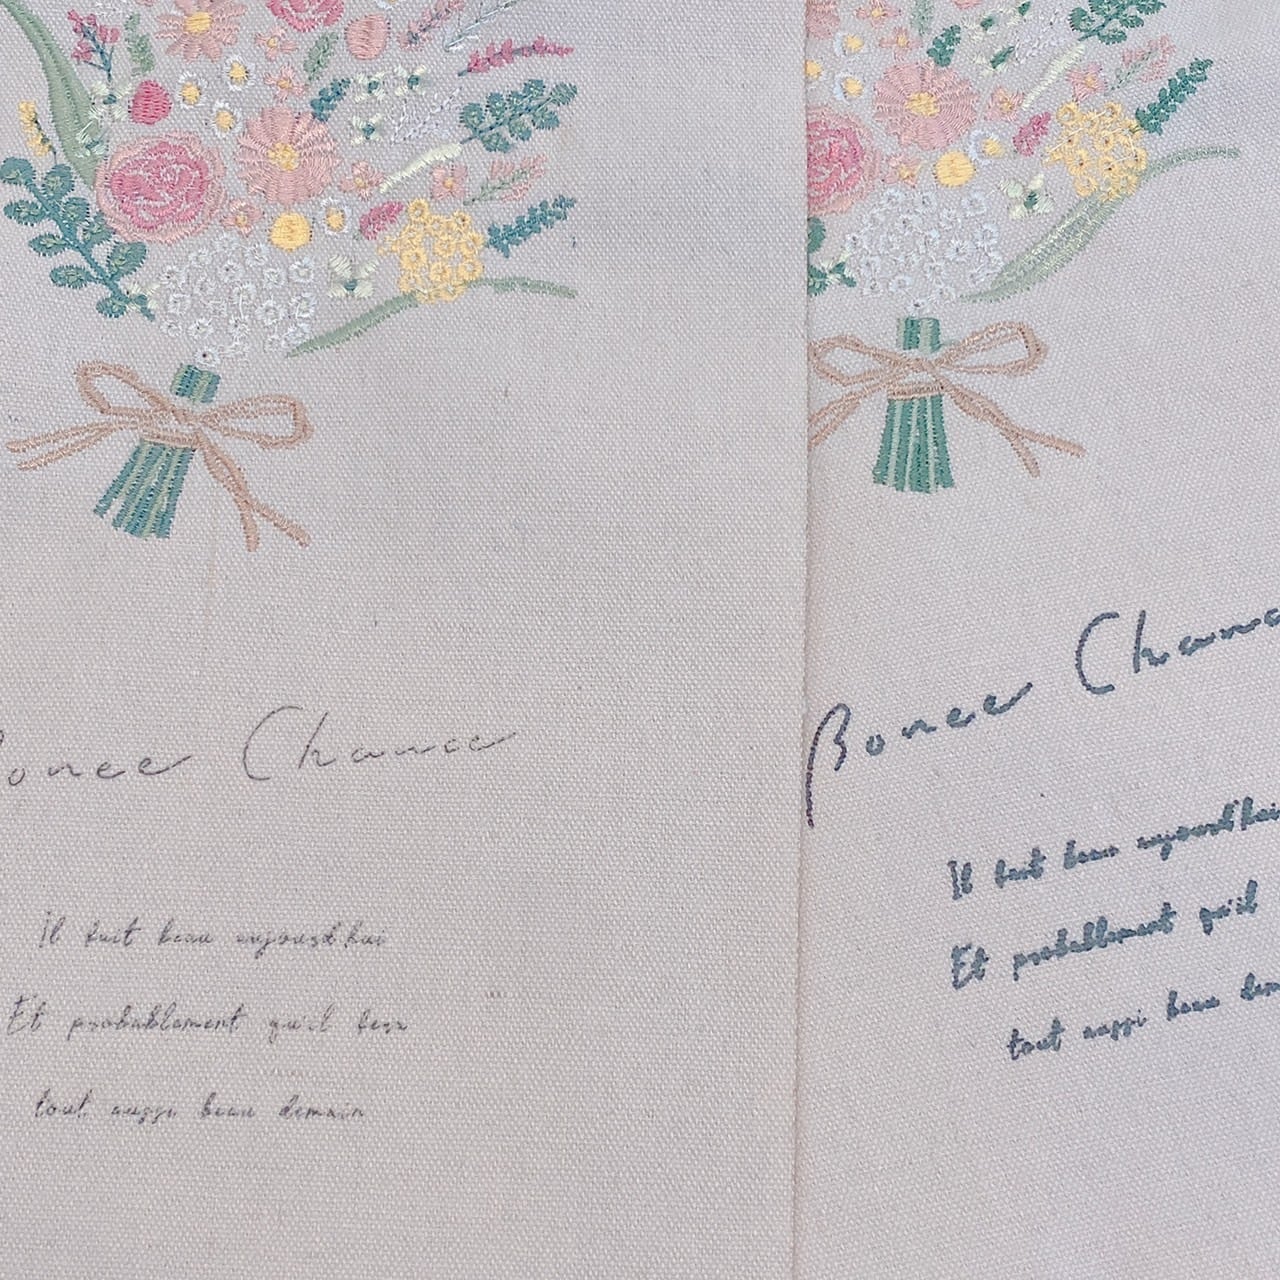 onee Chance
Il fait beau aujourd'hui
Et probablement qu'il fera
tout aussi beau demain
Bonee Chanc
Il fait beau aujourd'hui
Et probablement qu'il
tout aussi beau dem